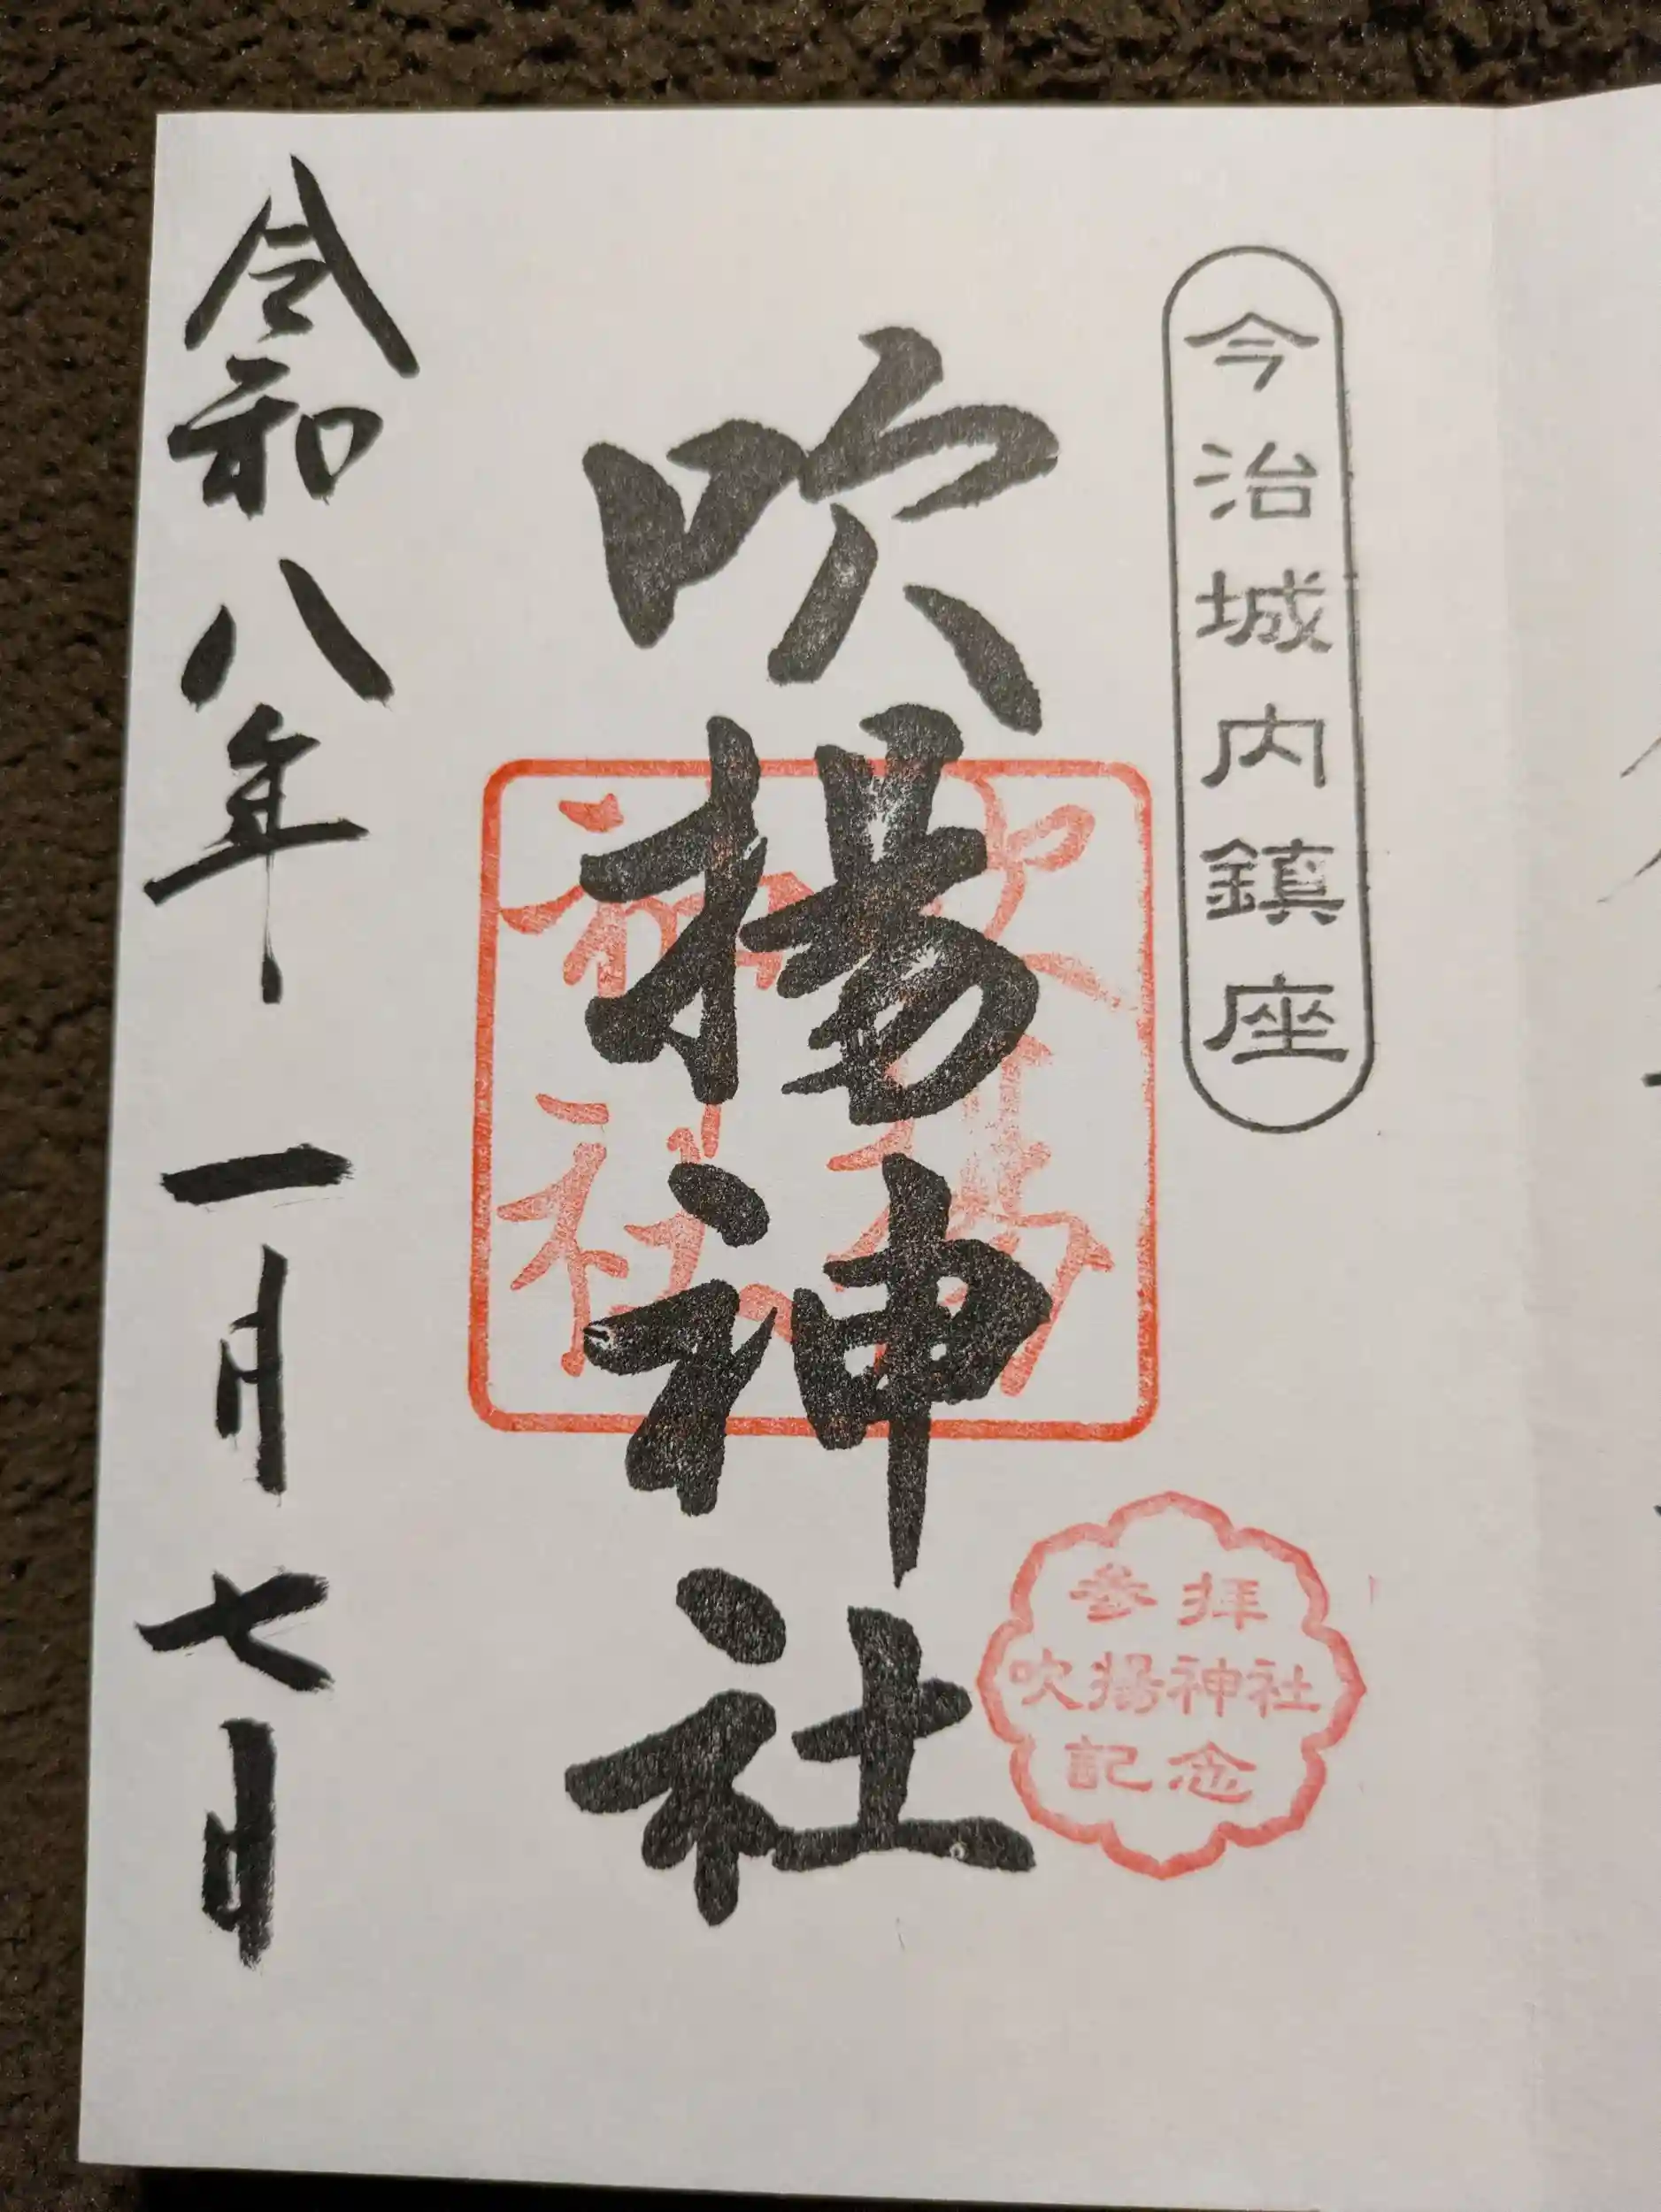 今治城内鎮座
吹揚神社
吹揚神社
参拝
吹揚神社
記念
令和八年一月七日